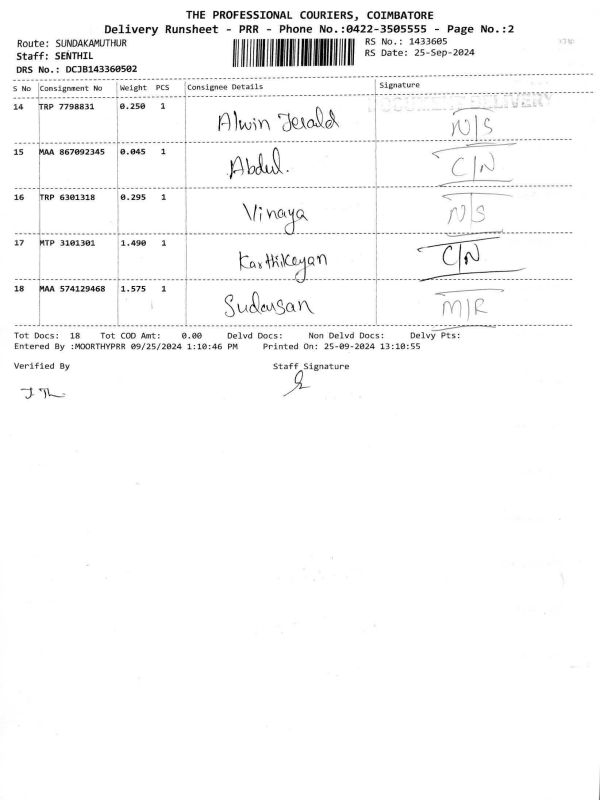 THE PROFESSIONAL COURIERS, COIMBATORE
Delivery Runsheet - PRR - Phone No.:0422-3505555 - Page No.:2
Route: SUNDAKAMUTHUR RS No.: 1433605
Staff: SENTHIL RS Date: 25-Sep-2024
DRS No.: DCJB143360502
S No Consignment No Weight PCS Consignee Details Signature
DOCUMENT DELIVERY
14 TRP 7798831 0.250 1 Alwin Jerald N/S
15 MAA 867092345 0.045 1 Abdul. C/N
16 TRP 6301318 0.295 1 Vinaya N/S
17 MTP 3101301 1.490 1 Karthikeyan C/N
18 MAA 574129468 1.575 1 Sudarsan M/R
Tot Docs: 18 Tot COD Amt: 0.00 Delvd Docs: Non Delvd Docs: Delvy Pts:
Entered By :MOORTHYPRR 09/25/2024 1:10:46 PM Printed On: 25-09-2024 13:10:55
Verified By Staff Signature